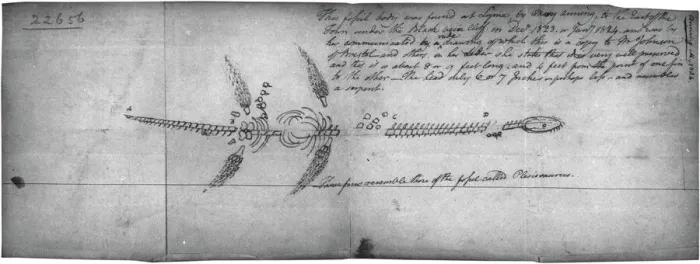 22656
This fossil body was found at Lyme, by Mary Anning, to the East of the
Town under the Black Ven Cliff in Decr 1823, or Jany 1824 and was by
her communicated by a rude drawing of which this is a copy to Mr Johnson
of Bristol and she, in her letter states this as very well preserved
and that it is about 8 or 9 feet long; and 4 feet from the point of one fin
to the other — The head only 6 or 7 Inches or perhaps less, and resembles
a serpent.
These fins resemble those of the fossil called Plesiosaurus.